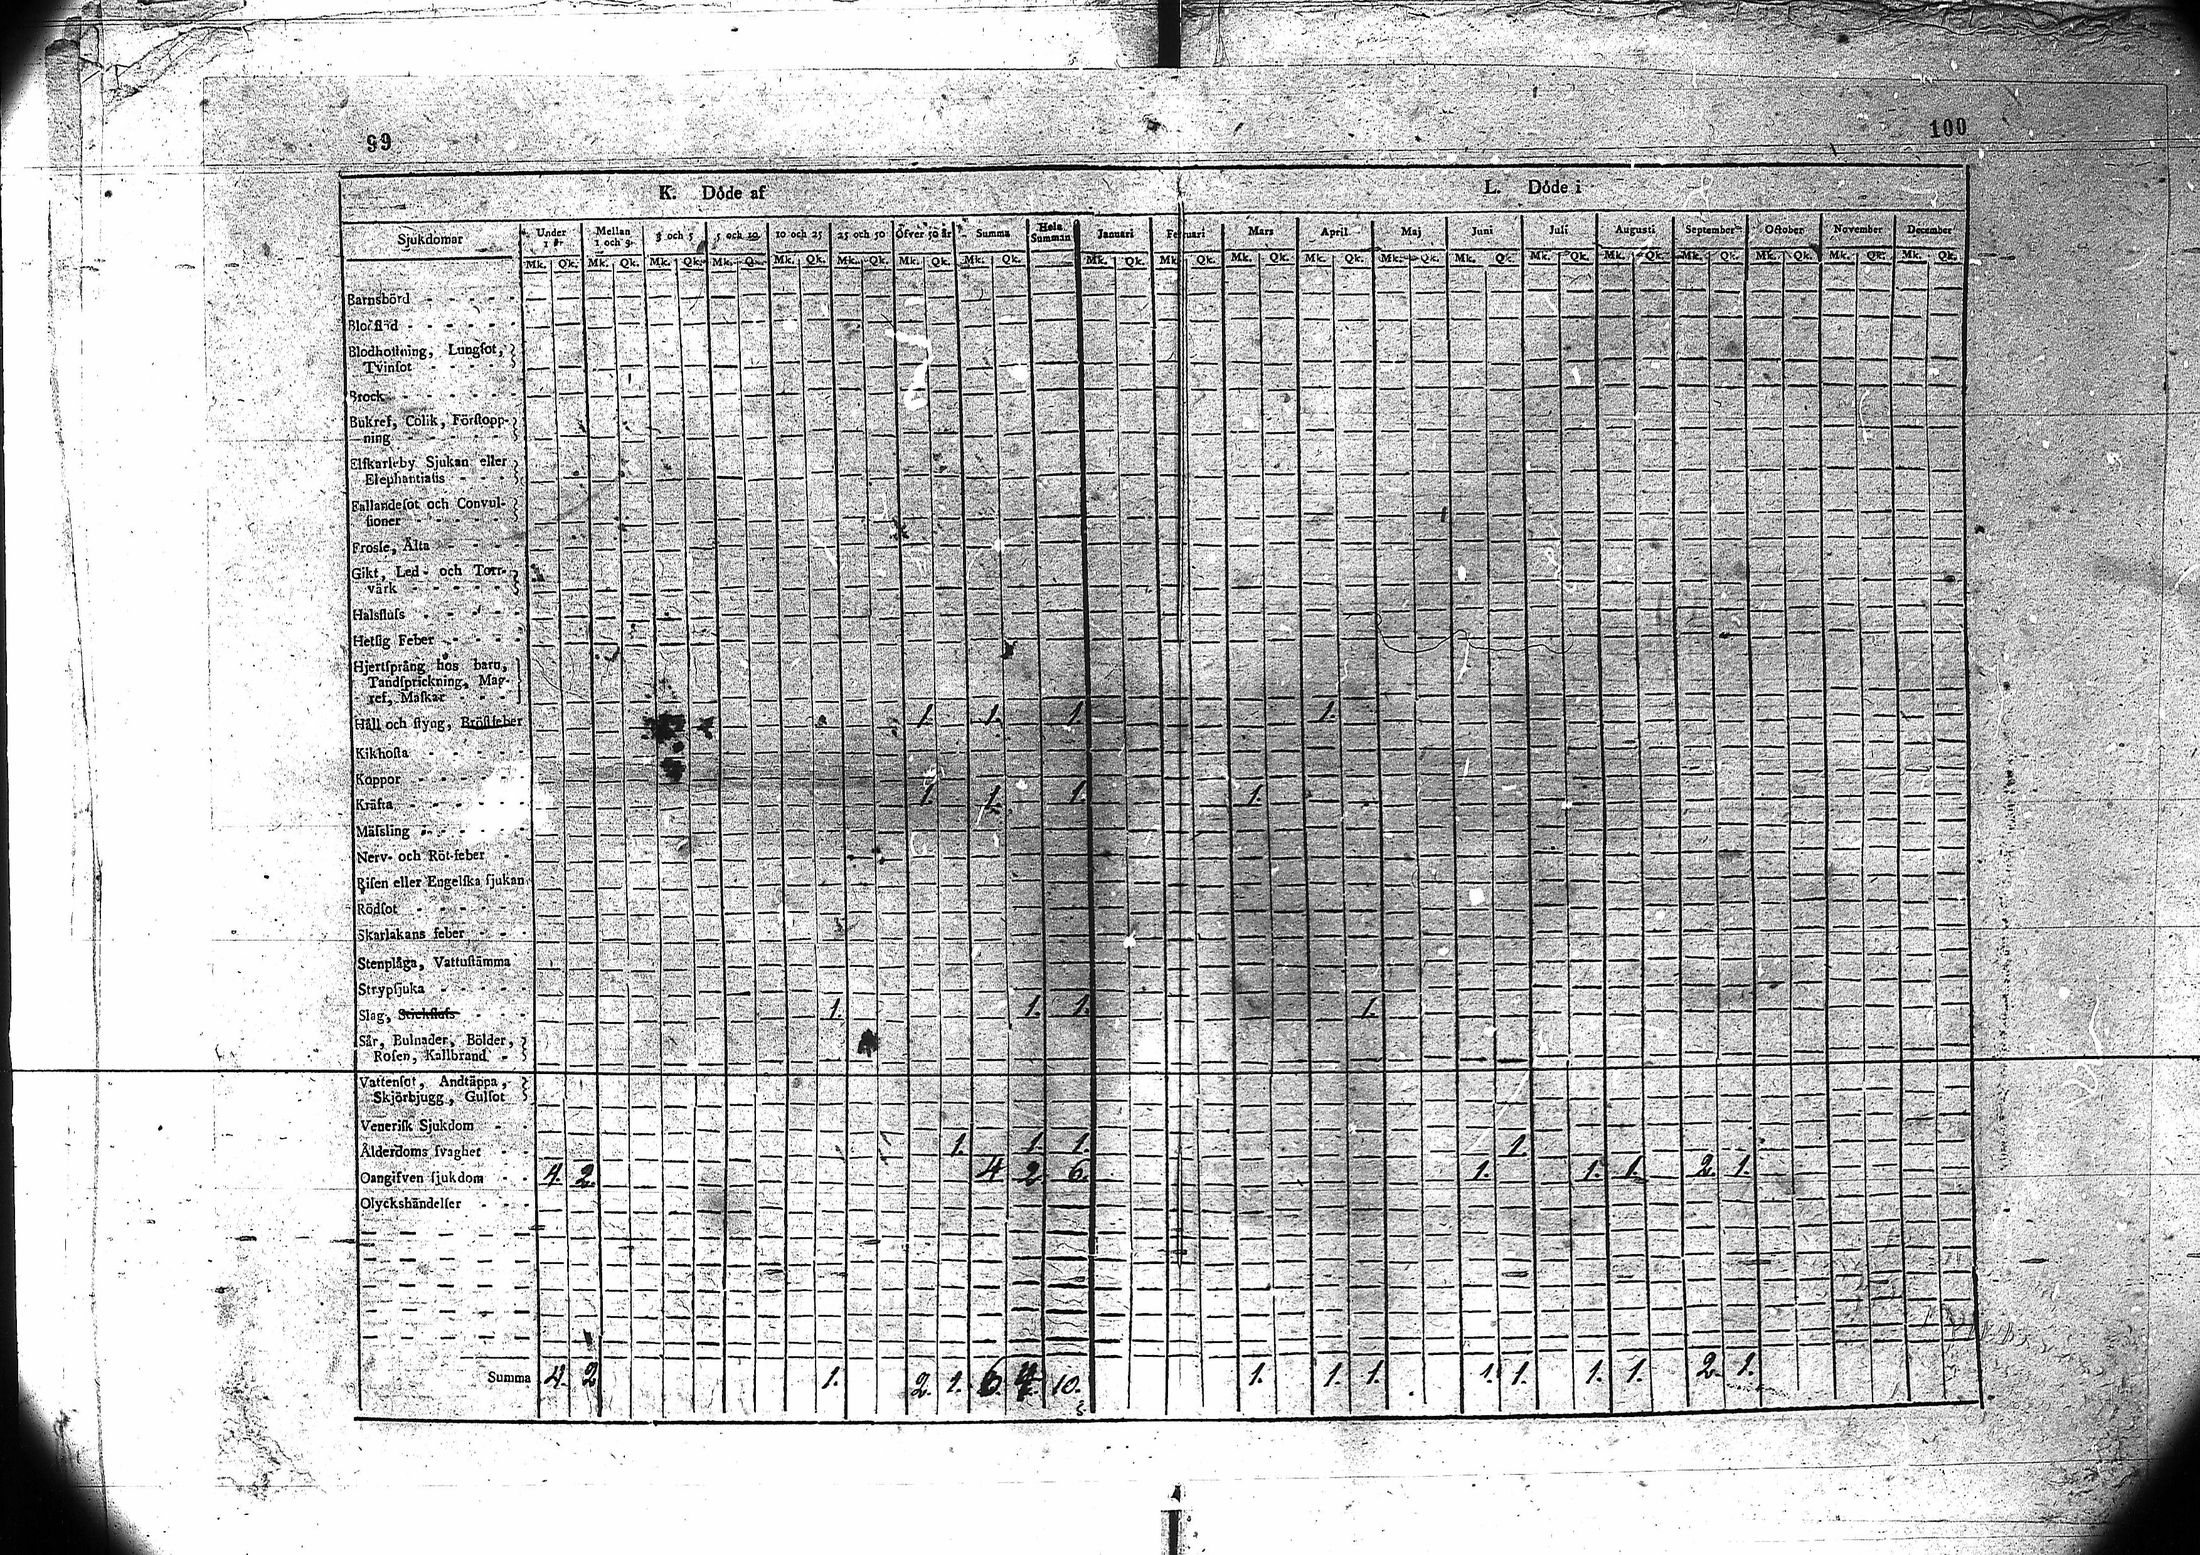 99
100
K. Döde af
L. Döde i
Sjukdomar
Under 1 år
Mellan 1 och 3
3 och 5
5 och 10
10 och 25
25 och 50
Öfver 50 år
Summa
Hela Summan
Januari
Februari
Mars
April
Maj
Juni
Juli
Augusti
September
October
November
December
Mk. Qk. Mk. Qk. Mk. Qk. Mk. Qk. Mk. Qk. Mk. Qk. Mk. Qk. Mk. Qk. Mk. Qk. Mk. Qk. Mk. Qk. Mk. Qk. Mk. Qk. Mk. Qk. Mk. Qk. Mk. Qk. Mk. Qk. Mk. Qk. Mk. Qk.
Barnsbörd
Blodflöd
Blodhostning, Lungsot,
Tvinsot
Brock
Bukref, Colik, Förstopp-
ning
Elfkarleby Sjukan eller
Elephantiasis
Fallandesot och Convul-
sioner
Frossa, Älta
Gikt, Led- och Torr-
värk
Halsfluss
Hetsig Feber
Hjertsprång hos barn,
Tandsprickning, Mag-
ref, Maskar
Håll och styng, Bröstfeber 1. 1. 1. 1.
Kikhosta
Koppor
Kräfta 1. 1. 1. 1.
Mässling
Nerv- och Röt-feber
Risen eller Engelska sjukan
Rödsot
Skarlakans feber
Stenplåga, Vattustämma
Strypsjuka
Slag, Stickfluss 1. 1. 1. 1.
Sår, Bulnader, Bölder,
Rosen, Kallbrand
Vattensot, Andtäppa,
Skjörbjugg, Gulsot
Venerisk Sjukdom
Ålderdoms svaghet 1. 1. 1. 1.
Oangifven sjukdom 4. 2. 4 2 6. 1. 1. 1. 2. 1.
Olyckshändelser
Summa 4. 2 1. 2. 1. 6 4 10. 1. 1. 1. 1. 1. 1. 1. 2. 1.